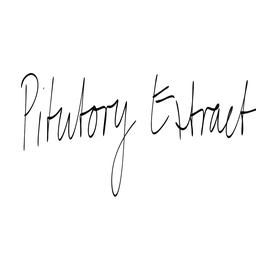 Pitutory Extract